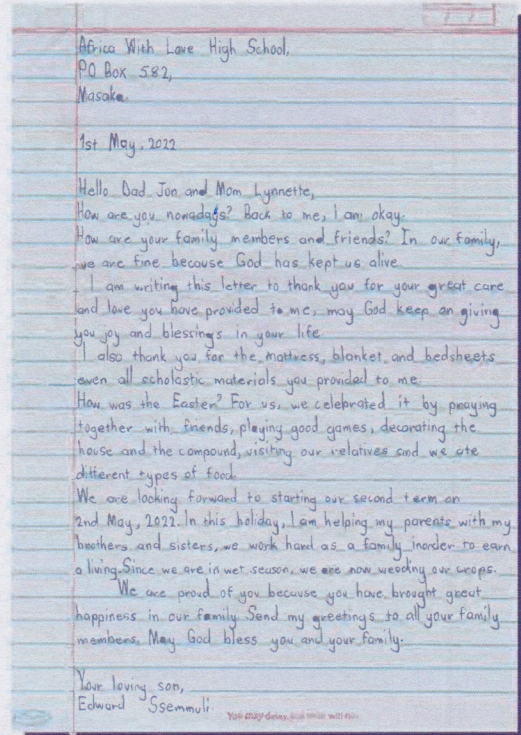 Africa With Love High School,
PO Box 582,
Masaka.
1st May, 2022
Hello Dad Jon and Mom Lynnette,
How are you nowadays? Back to me, I am okay.
How are your family members and friends? In our family,
we are fine because God has kept us alive.
I am writing this letter to thank you for your great care
and love you have provided to me, may God keep on giving
you joy and blessings in your life.
I also thank you for the mattress, blanket, and bedsheets
even all scholastic materials you provided to me.
How was the Easter? For us, we celebrated it by praying
together with friends, playing good games, decorating the
house and the compound, visiting our relatives and we ate
different types of food.
We are looking forward to starting our second term on
2nd May, 2022. In this holiday, I am helping my parents with my
brothers and sisters, we work hard as a family inorder to earn
a living. Since we are in wet season, we are now weeding our crops.
We are proud of you because you have brought great
happiness in our family. Send my greetings to all your family
members. May God bless you and your family.
Your loving son,
Edward Ssemmuli.
You may delay, but time will not.